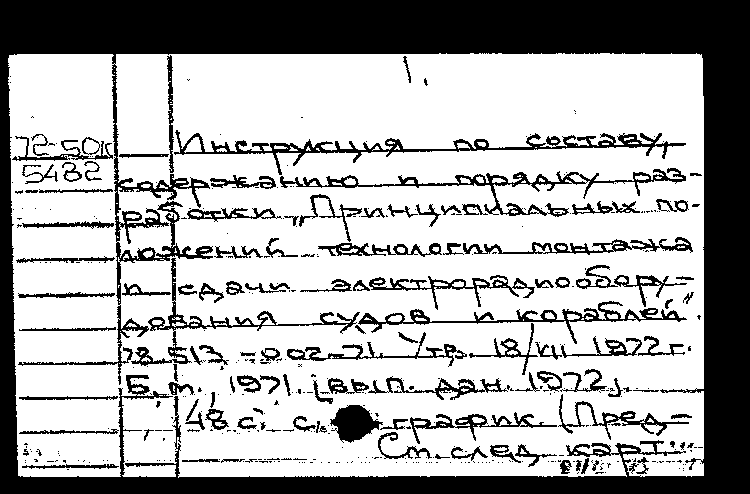 1.
72-50к
5482
Инструкция по составу,
содержанию и порядку раз-
работки „Принципиальных по-
ложений технологии монтажа
и сдачи электрорадиообору-
дования судов и кораблей".
78.513-002-71. Утв. 18/VII 1972 г.
Б. м., 1971. [вып. дан. 1972].
48 с. с график. (Пред-
См. след. карт.